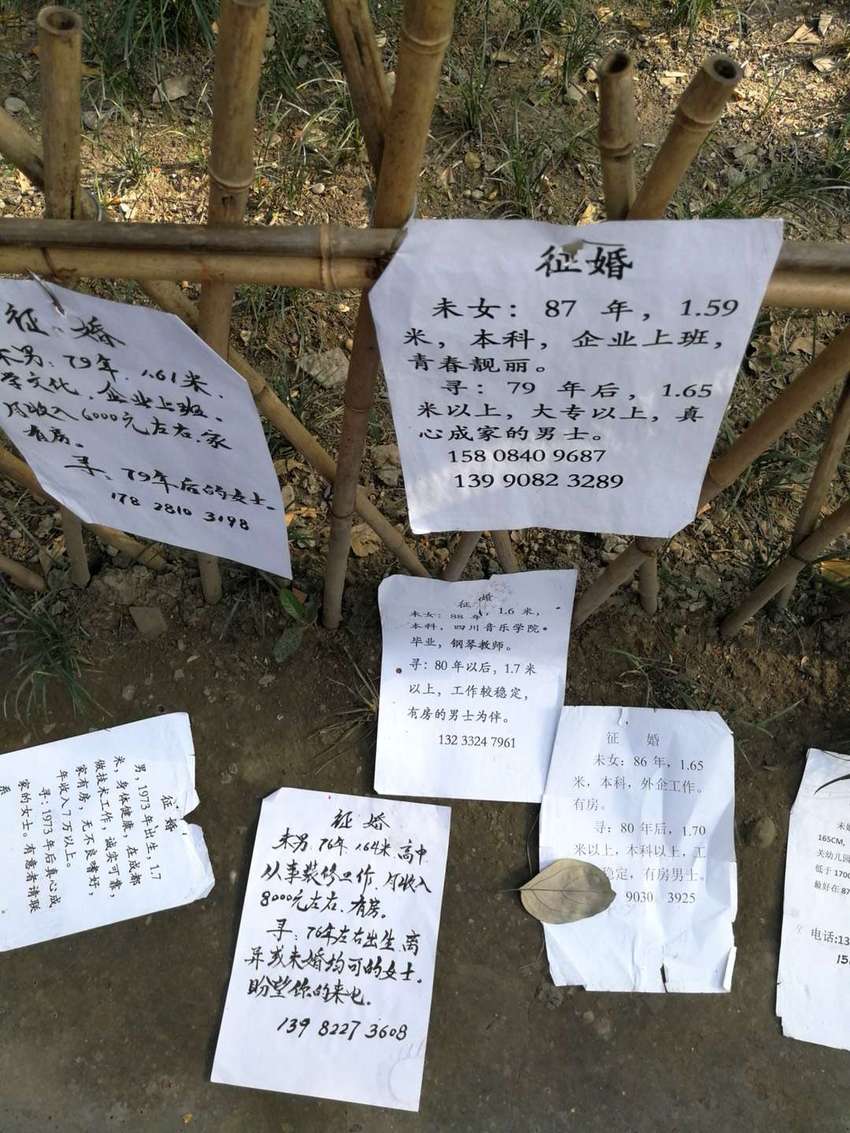 征婚
未男:79年.1.61米.
学文化.企业上班.
月收入6000元左右.家
有房。
寻:79年后的女士.
178 2810 3198
征婚
未女:87 年,1.59
米,本科,企业上班,
青春靓丽。
寻:79 年后,1.65
米以上,大专以上,真
心成家的男士。
158 0840 9687
139 9082 3289
征 婚
未女:88年,1.6 米,
本科,四川音乐学院
毕业,钢琴教师。
寻:80 年以后,1.7 米
以上,工作较稳定,
有房的男士为伴。
132 3324 7961
征婚
男,1973 年出生,1.7
米,身体健康,在成都
做技术工作,诚实可靠,
家有房,无不良嗜好,
年收入 7 万以上。
寻:1973 年后真心成
家的女士。有意者请联
系
征 婚
未男.76年.1.64米.高中
从事装修工作.月收入
8000元左右.有房。
寻:76年左右出生.离
异或未婚均可的女士.
盼望你的来电.
139 8227 3608
征 婚
未女:86 年,1.65
米,本科,外企工作。
有房。
寻:80 年后,1.70
米以上,本科以上,工
稳定,有房男士。
9030 3925
165CM,
关幼儿园
低于 170
最好在 87
电话:13
15